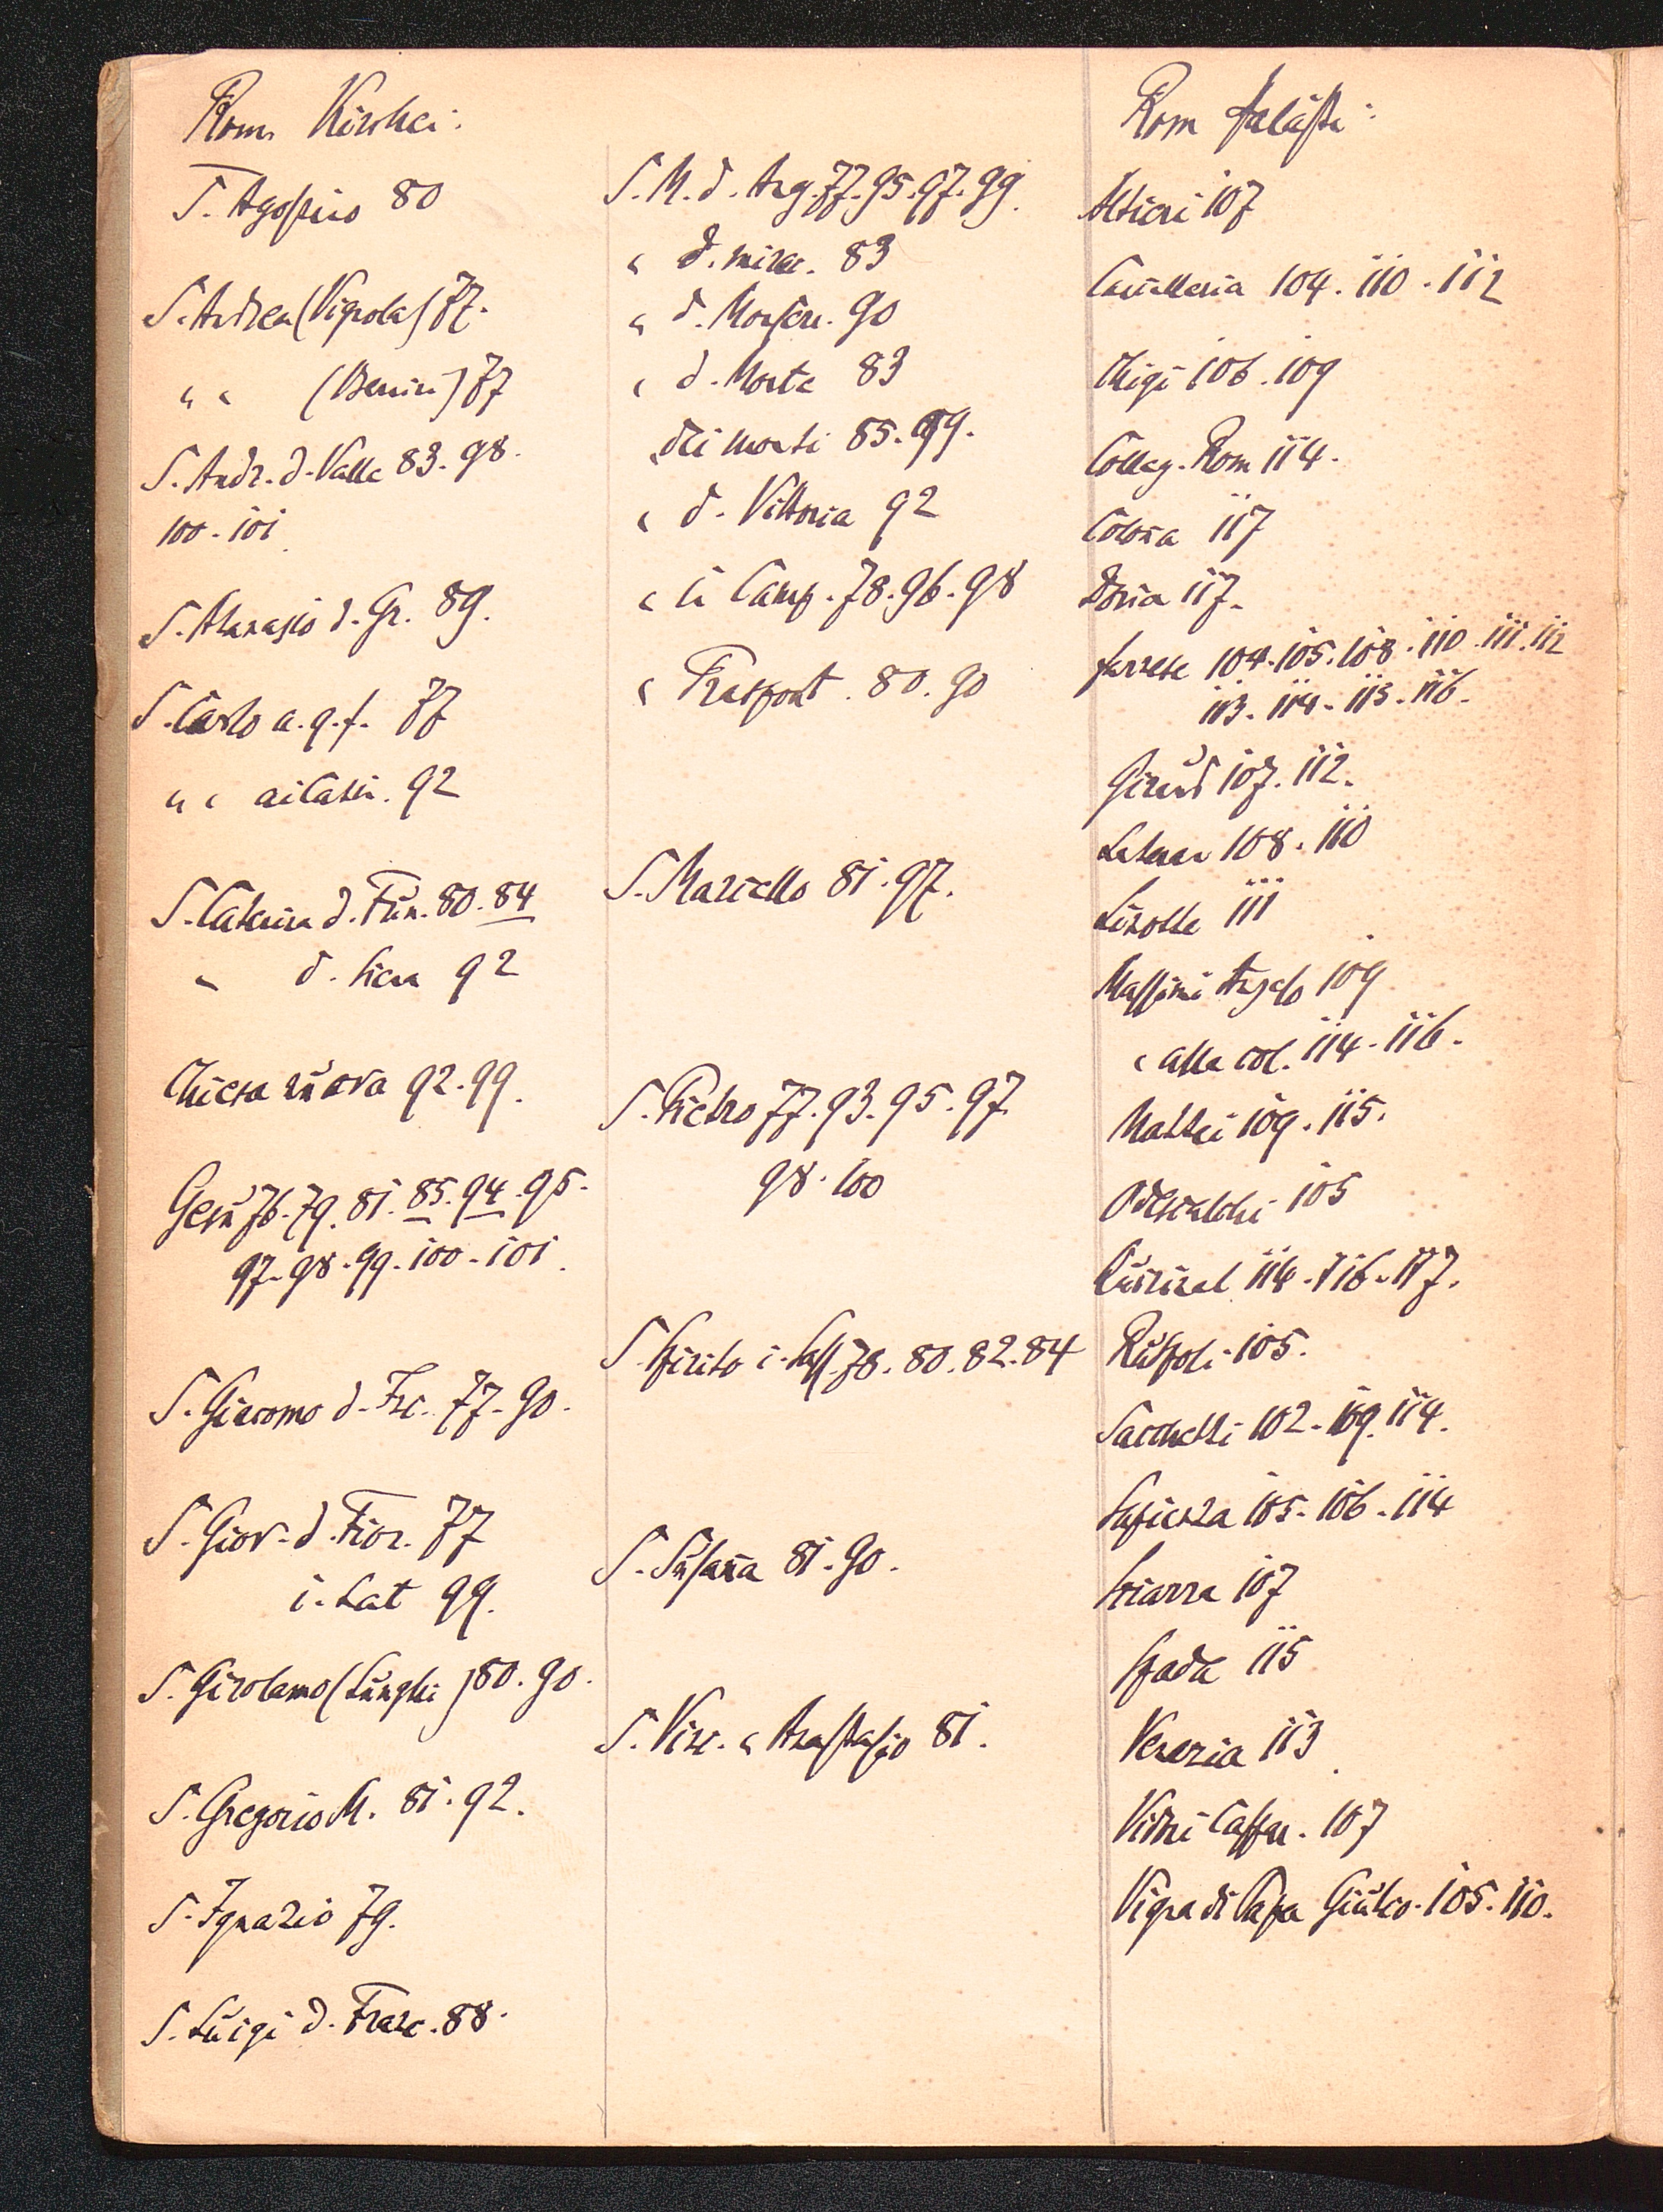 Rom Kirchen:
S. Agostino 80
S. Andrea (Vignola) 77.
" " (Bernini) 77
S. Andr. d. Valle 83. 98.
100. 101.
S. Atanasio d. Gr. 89.
S. Carlo a. q. f. 77
" " ai Catin. 92
S. Caterina d. Fun. 80. 84
" d. Siena 92
Chiesa nuova 92. 99.
Gesù 76. 79. 81. 85. 94. 95.
97. 98. 99. 100. 101.
S. Giacomo d. Inc. 77. 90.
S. Giov. d. Fior. 77
i. Lat 99.
S. Girolamo (Lunghi) 80. 90.
S. Gregorio M. 81. 92.
S. Ignazio 79.
S. Luigi d. Franc. 88.
S. M. d. Ang. 77. 95. 97. 99.
" d. mirac. 83
" d. Monserr. 90
" d. Morte 83
" dei monti 85. 99.
" d. Vittoria 92
" i Camp. 78. 96. 98
" Traspont. 80. 90
S. Marcello 81. 97.
S. Pietro 77. 93. 95. 97.
98. 100
S. Spirito i. Sass. 78. 80. 82. 84
S. Susana 81. 90.
S. Vinc. " Anastasio 81.
Rom Paläste:
Altieri 107
Cancelleria 104. 110. 112
Chigi 106. 109
Colleg. Rom 114.
Colona 117
Doria 117.
Farnese 104. 105. 108. 110. 111. 112
113. 114. 115. 116.
Giraud 107. 112.
Lateran 108. 110
Linotte 111
Massimi Angelo 109
" alle col. 114. 116.
Mattei 109. 115.
Odescalchi 105
Quirinal 114. 116. 117.
Ruspoli 105.
Sacchetti 102. 109. 114.
Sapienza 105. 106. 114
Sciarra 107
Spada 115
Venezia 113.
Vidoni Caffar. 107
Vigna di Papa Giulio. 105. 110.